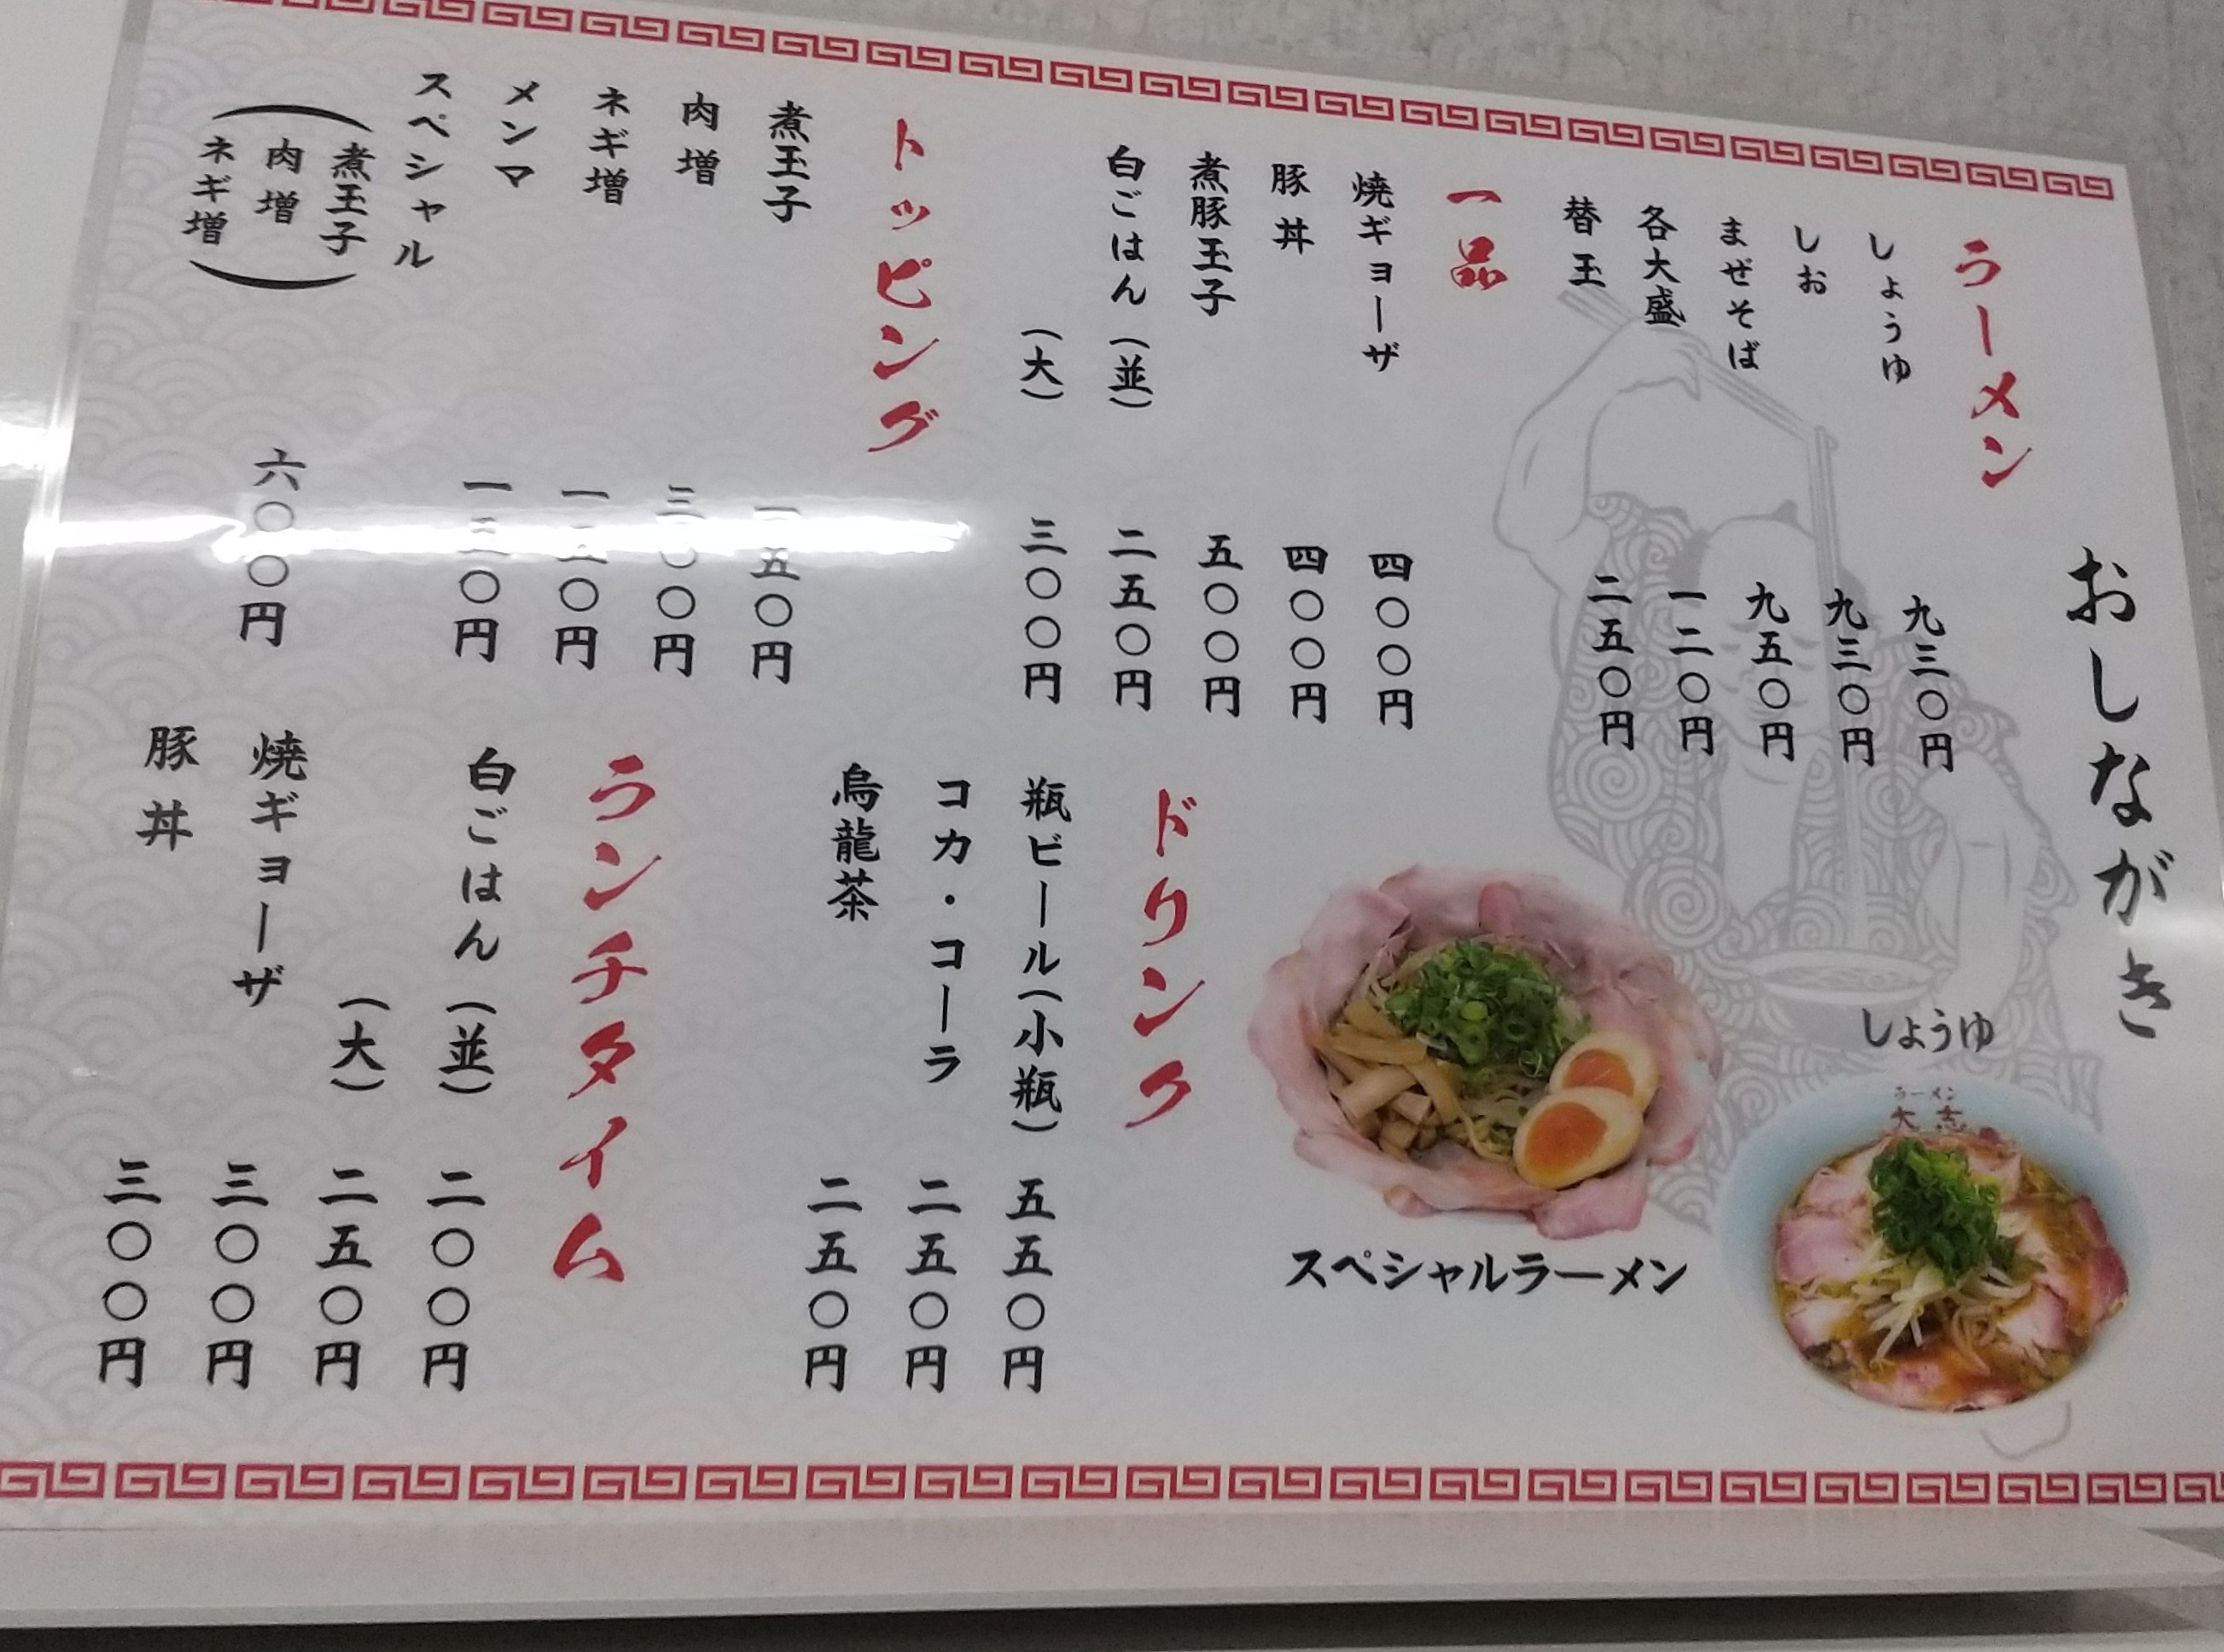 おしながき
ラーメン
しょうゆ 九三〇円
しお 九三〇円
まぜそば 九五〇円
各大盛 一二〇円
替玉 二五〇円
一品
焼ギョーザ 四〇〇円
豚丼 四〇〇円
煮豚玉子 五〇〇円
白ごはん(並) 二五〇円
(大) 三〇〇円
トッピング
煮玉子 一五〇円
肉増 三〇〇円
ネギ増 一五〇円
メンマ 〇円
スペシャル
(煮玉子
肉増
ネギ増)
六〇〇円
ドリンク
瓶ビール(小瓶) 五五〇円
コカ・コーラ 二五〇円
烏龍茶 二五〇円
ランチタイム
白ごはん(並) 二〇〇円
(大) 二五〇円
焼ギョーザ 三〇〇円
豚丼 三〇〇円
しょうゆ
ラーメン
大志
スペシャルラーメン